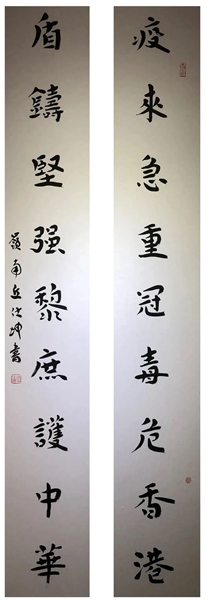 疫來急重冠毒危香港
盾鑄堅强黎庶護中華
嶺南丘仕坤書